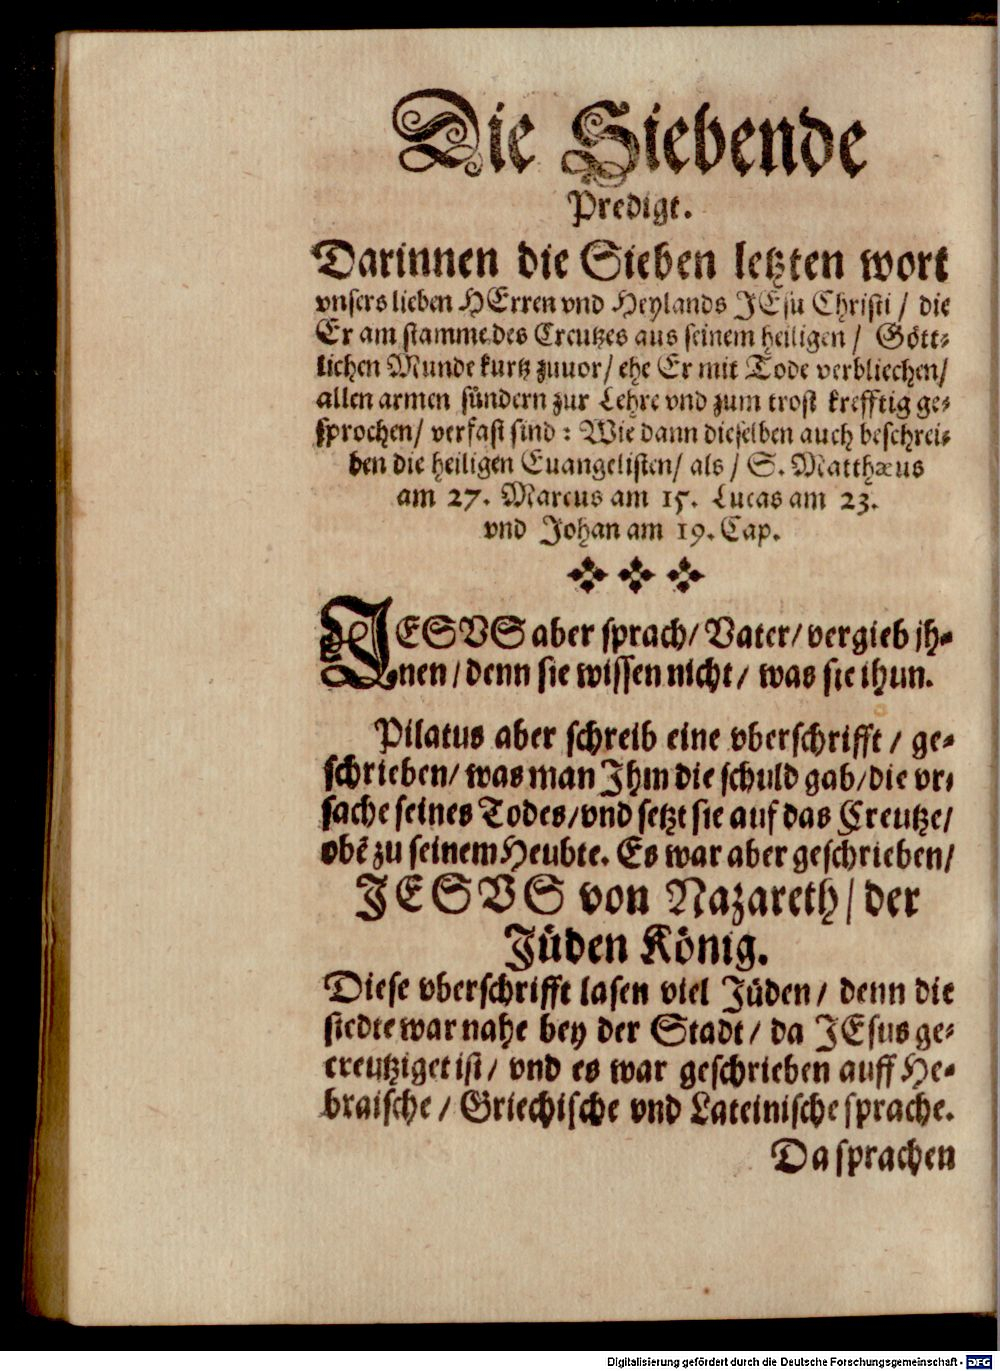 Die Siebende
Predigt.
Darinnen die Sieben letzten wort
vnsers lieben HErren vnd Heylands JEsu Christi / die
Er am stamme des Creutzes aus seinem heiligen / Gött-
lichen Munde kurtz zuuor / ehe Er mit Tode verbliechen /
allen armen sündern zur Lehre vnd zum trost krefftig ge-
sprochen / verfast sind : Wie dann dieselben auch beschrei-
ben die heiligen Euangelisten / als / S. Matthæus
am 27. Marcus am 15. Lucas am 23.
vnd Johan am 19. Cap.
JESVS aber sprach / Vater / vergieb jh-
nen / denn sie wissen nicht / was sie thun.
Pilatus aber schreib eine vberschrifft / ge-
schrieben / was man Ihm die schuld gab / die vr-
sache seines Todes / vnd setzt sie auf das Creutze /
obē zu seinem Heubte. Es war aber geschrieben /
JESVS von Nazareth / der
Jüden König.
Diese vberschrifft lasen viel Jüden / denn die
stedte war nahe bey der Stadt / da JEsus ge-
creutziget ist / vnd es war geschrieben auff He-
braische / Griechische vnd Lateinische sprache.
Da sprachen
Digitalisierung gefördert durch die Deutsche Forschungsgemeinschaft - DFG